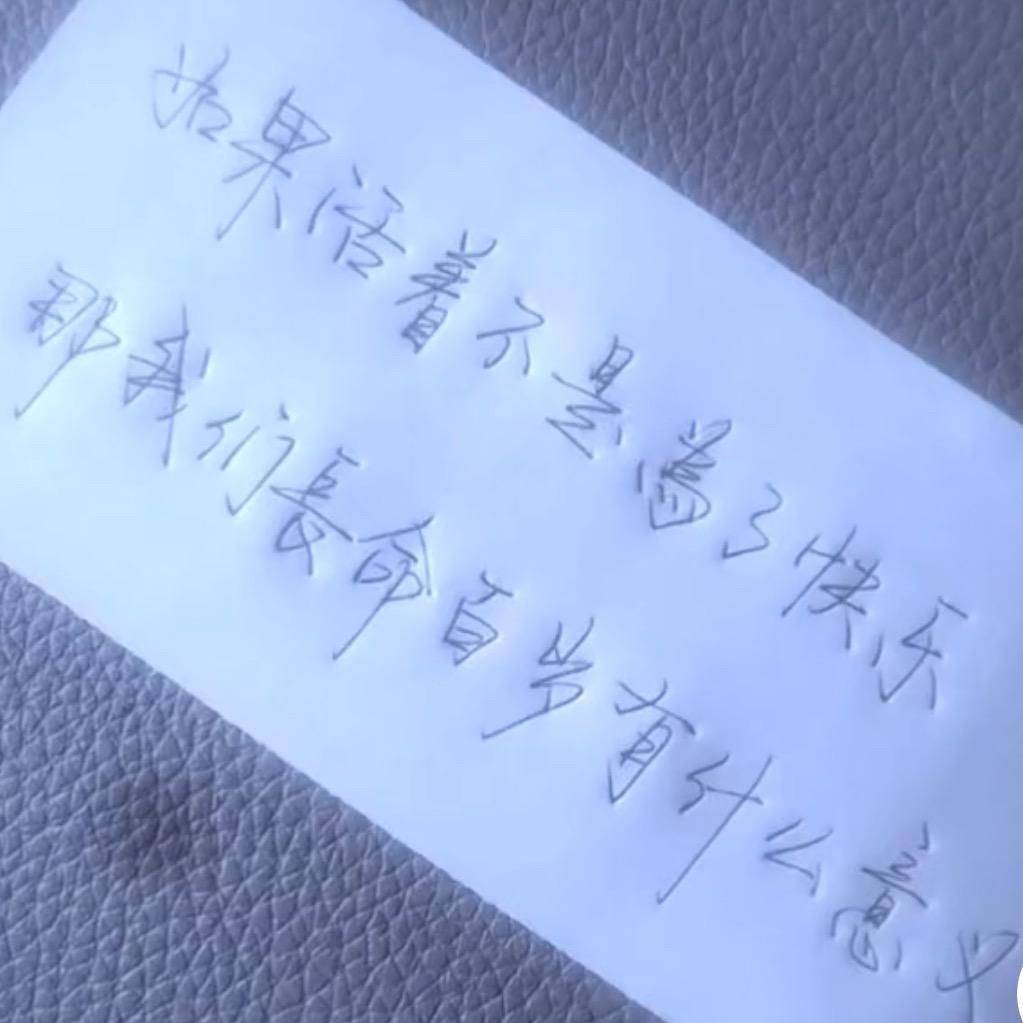 如果活着不是为了快乐
那我们长命百岁有什么意义